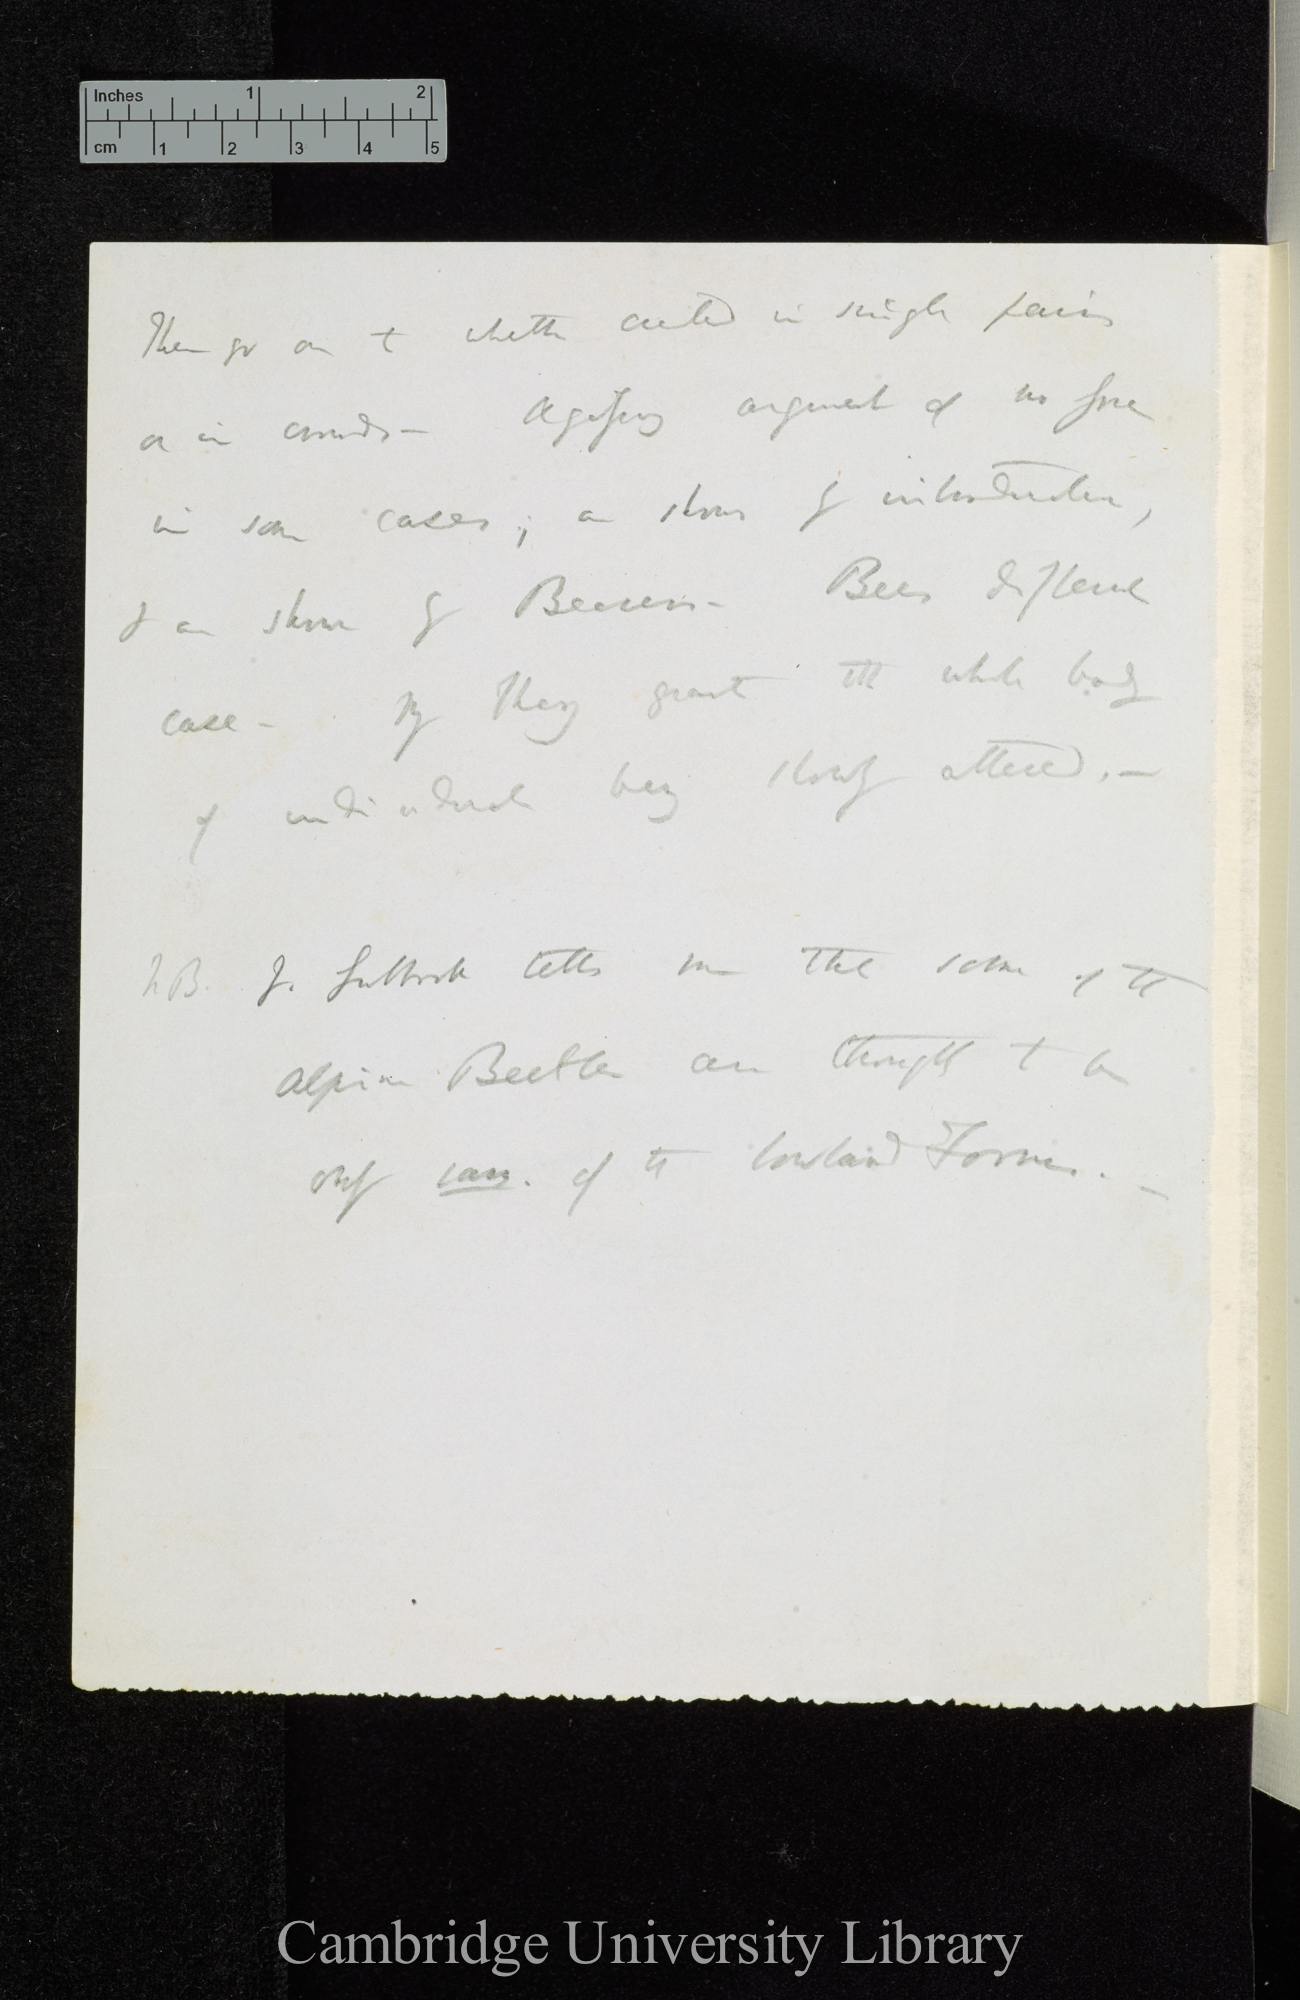 Inches 1 2
cm 1 2 3 4 5
Then go on to whether created in single pairs
or in crowds — Agassiz argument of no force
in some cases; as shown by introduction,
& as shown by Beavers — Bees different
case — My theory grants that whole body
of individuals being slowly altered. —
N.B. J. Lubbock tells me that some of the
alpine Beetles are thought to be
only vars. of the lowland Forms. —
Cambridge University Library